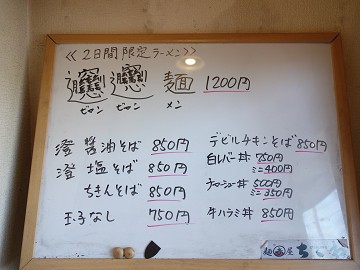 《2日間限定ラーメン》
𰻞𰻞麺 1200円
ビャン ビャン メン
澄 醤油そば 850円
澄 塩そば 850円
ちきんそば 850円
玉子なし 750円
デビルチキンそば 850円
白レバー丼 750円
ミニ 400円
チャーシュー丼 500円
ミニ 350円
牛ハラミ丼 850円
麺 屋